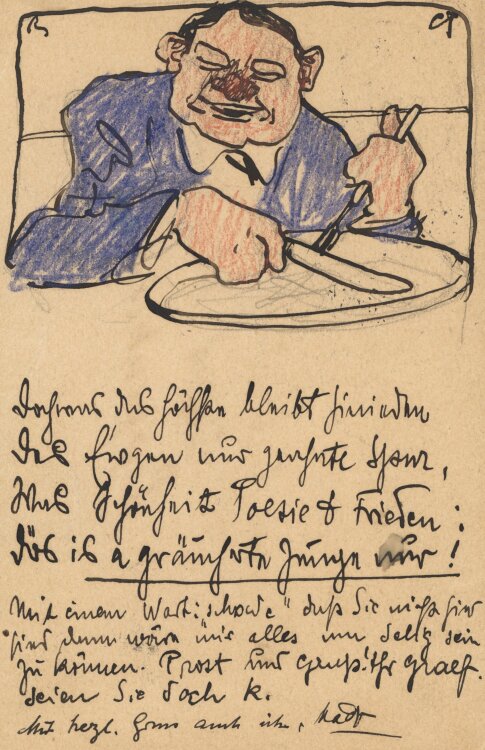 Doch was das Höchste bleibt hinieden
Des Ew'gen nur geahnte Spur,
Was Schönheit Poesie & Frieden:
Dös is a gräucherte Zunge nur!
Mit einem Wort: "schade" daß Sie nicht hier
sind dann wäre mir alles um selig sein
zu können. Prost und Gruß Ihr Graef.
seien Sie doch k.
Mit herzl. Gruss auch